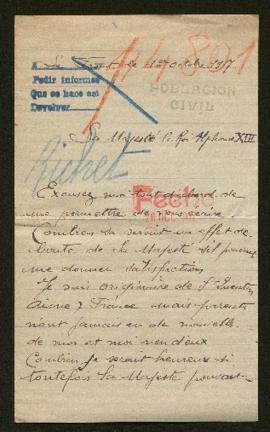 114801
le 1er octobre 1917
Pedir informes
Que se hace asi
Devolver
POBLACION
CIVIL
Sa Majesté le Roi Alphonse XIII
Richet
Excusez moi tout d'abord de
me permettre de vous écrire
Fecho
Combien ce serait un effet de
bonté de la Majesté s'il pouvait
me donner satisfaction
Je suis originaire de St Quentin
Aisne France mais parents
n'ont jamais eu de nouvelle
de moi et moi rien d'eux
Combien je serait heureuse si
toutefois Sa Majesté pouvait